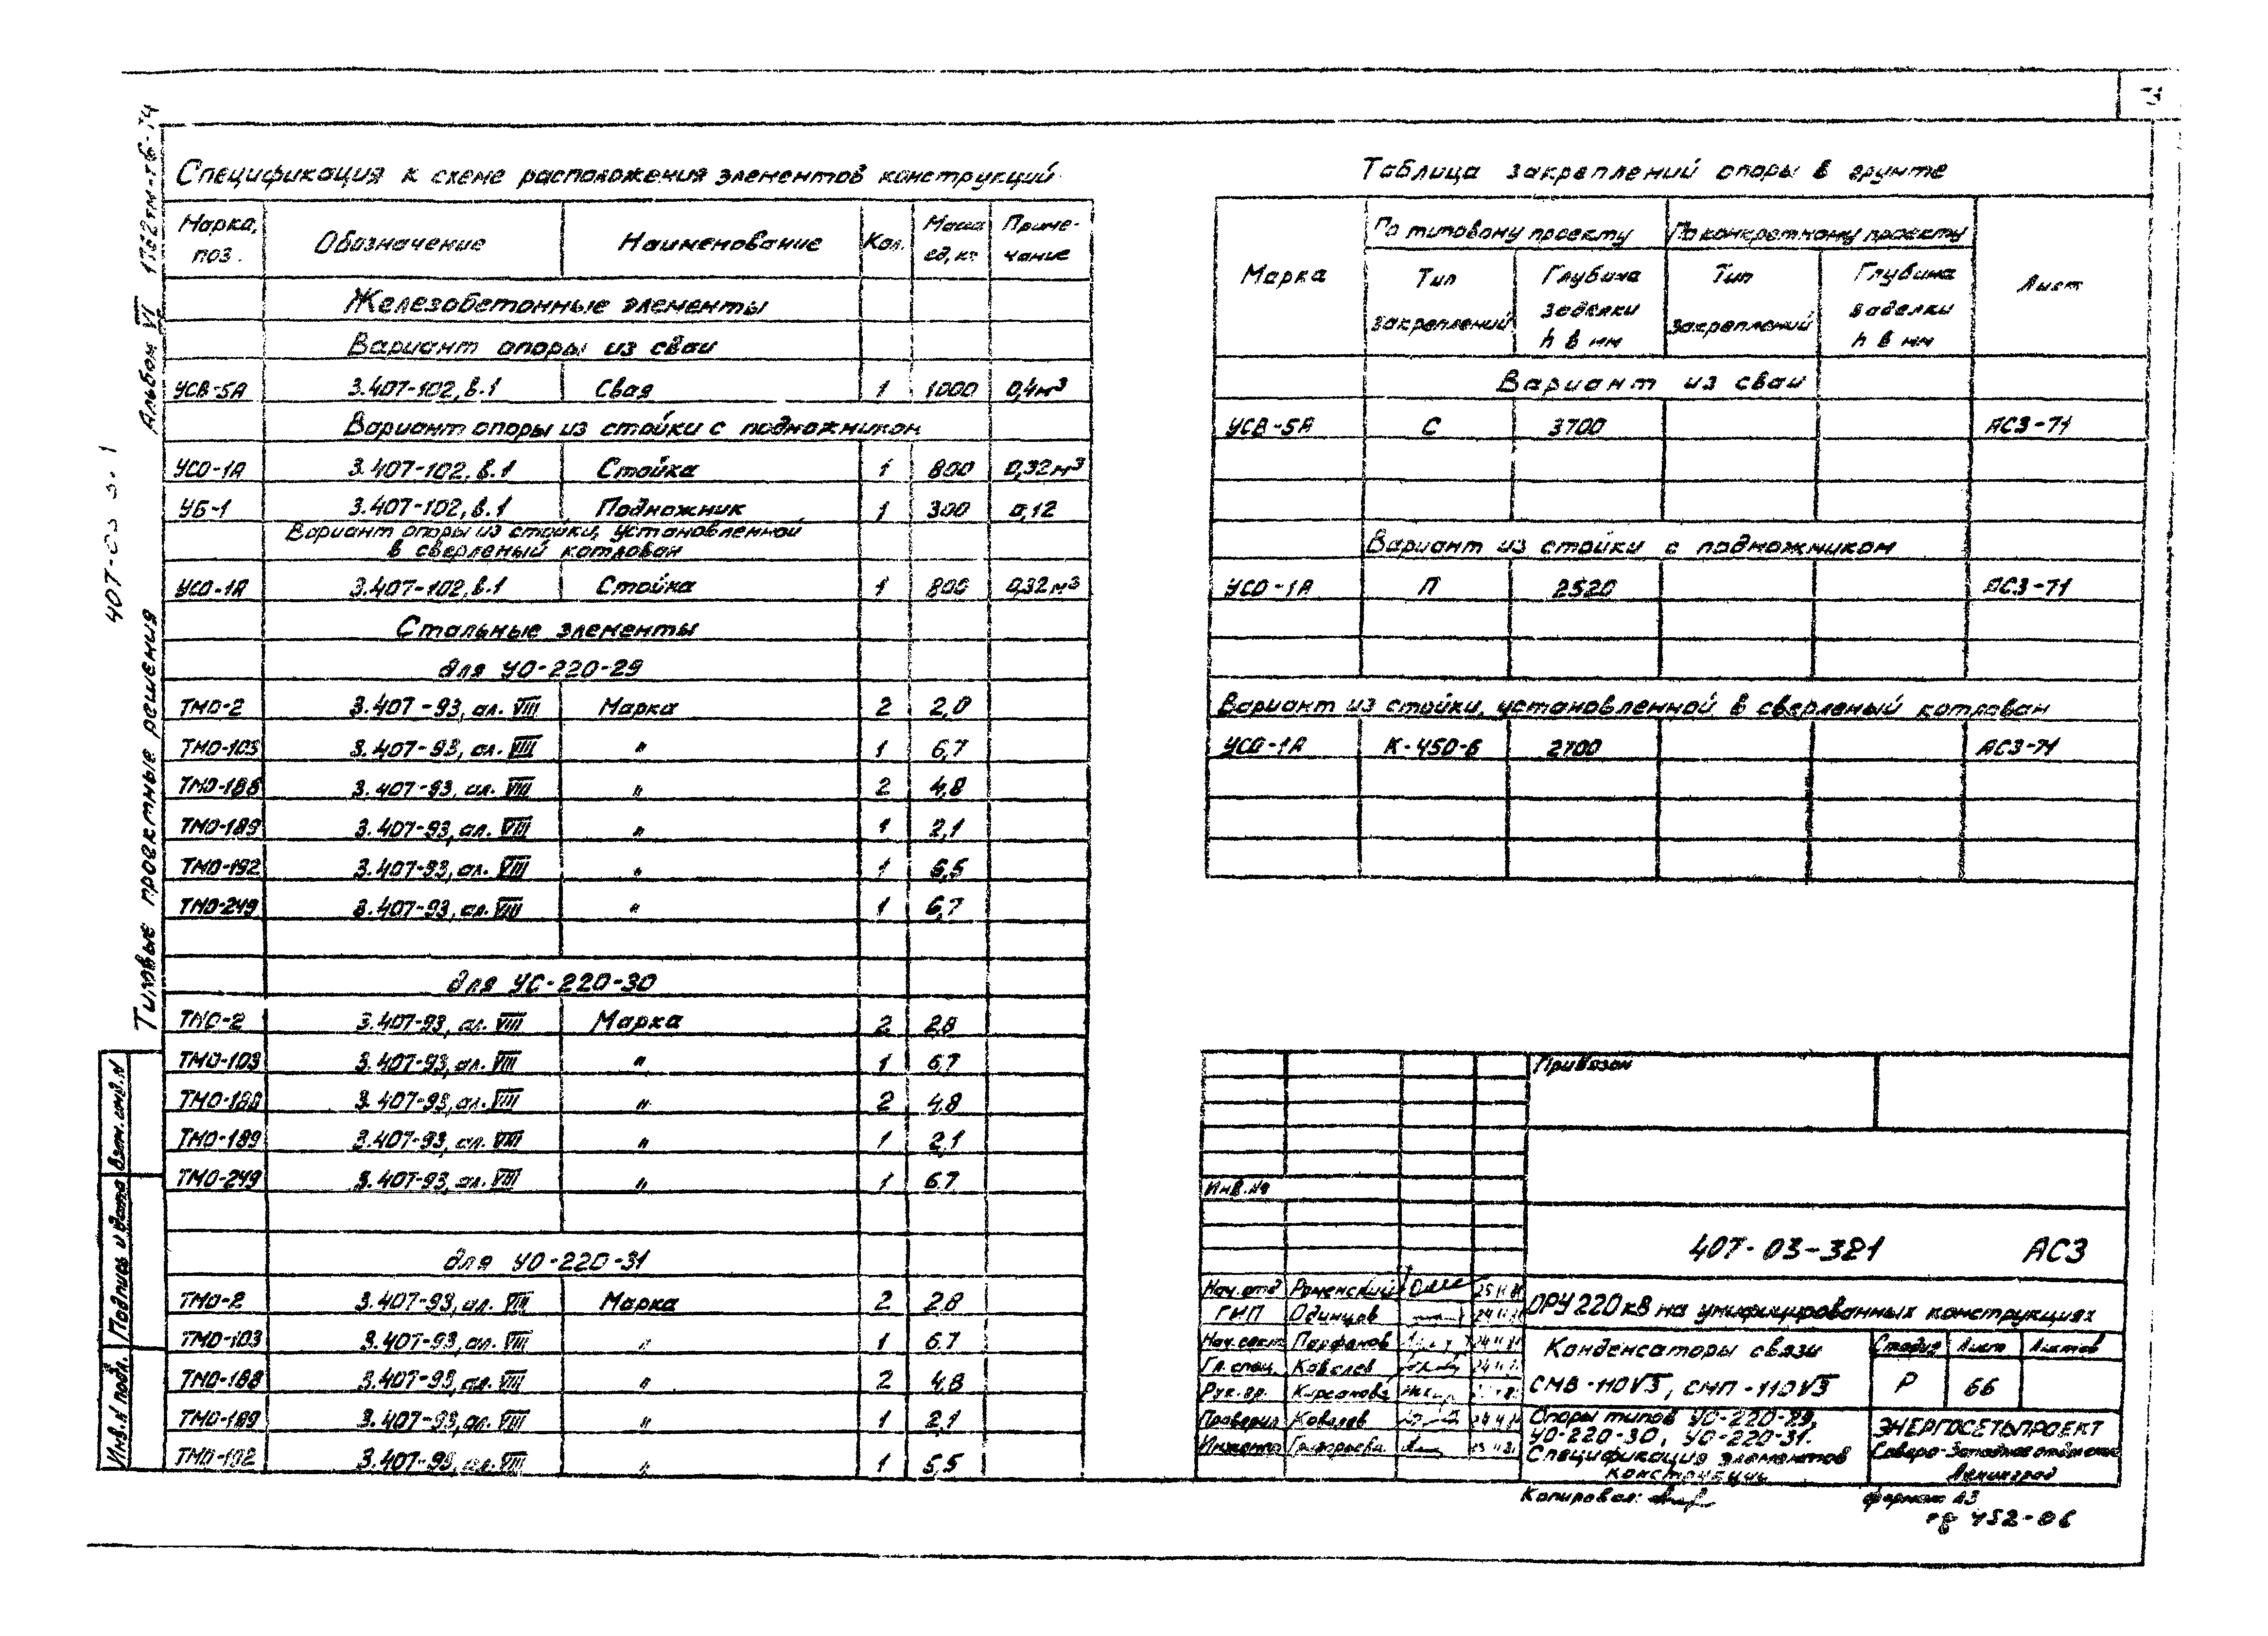 Альбом VI
Типовые проектные решения
Взам. инв. N
Подпись и дата
Инв. N подл.
Спецификация к схеме расположения элементов конструкций
Марка, поз. Обозначение Наименование Кол. Масса ед, кг Приме-чание
Железобетонные элементы
Вариант опоры из сваи
УСВ-5А 3.407-102, в.1 Свая 1 1000 0,4м³
Вариант опоры из стойки с подножником
УСО-1А 3.407-102, в.1 Стойка 1 800 0,32м³
УБ-1 3.407-102, в.1 Подножник 1 300 0,12
Вариант опоры из стойки, установленной
в сверленый котлован
УСО-1А 3.407-102, в.1 Стойка 1 800 0,32м³
Стальные элементы
для УО-220-29
ТМО-2 3.407-93, ал. VIII Марка 2 2,0
ТМО-103 3.407-93, ал. VIII " 1 6,7
ТМО-188 3.407-93, ал. VIII " 2 4,8
ТМО-189 3.407-93, ал. VIII " 1 2,1
ТМО-192 3.407-93, ал. VIII " 1 6,5
ТМО-249 3.407-93, ал. VIII " 1 6,7
для УС-220-30
ТМО-2 3.407-93, ал. VIII Марка 2 2,8
ТМО-103 3.407-93, ал. VIII " 1 6,7
ТМО-188 3.407-93, ал. VIII " 2 4,8
ТМО-189 3.407-93, ал. VIII " 1 2,1
ТМО-249 3.407-93, ал. VIII " 1 6,7
для УО-220-31
ТМО-2 3.407-93, ал. VIII Марка 2 2,8
ТМО-103 3.407-93, ал. VIII " 1 6,7
ТМО-188 3.407-93, ал. VIII " 2 4,8
ТМО-189 3.407-93, ал. VIII " 1 2,1
ТМО-192 3.407-93, ал. VIII " 1 6,5
Таблица закреплений опоры в грунте
Марка По типовому проекту По конкретному проекту Лист
Тип закреплений Глубина заделки h в мм Тип закреплений Глубина заделки h в мм
Вариант из сваи
УСВ-5А С 3700 АС3-71
Вариант из стойки с подножником
УСО-1А П 2520 АС3-71
Вариант из стойки, установленной в сверленый котлован
УСО-1А К-450-6 2700 АС3-71
Привязан
Инв. №
407-03-321 АС3
Нач. отд Роменский
ГИП Одинцов
Нач. сект Парфенов
Гл. спец. Ковалев
Рук. гр. Кирсанова
Проверил Ковалев
Григорьева
ОРУ 220 кВ на унифицированных конструкциях
Конденсаторы связи
СМВ-110√3, СМП-110√3
Стадия Лист Листов
Р 66
Опоры типов УО-220-29,
УО-220-30, УО-220-31.
Спецификация элементов
конструкций
ЭНЕРГОСЕТЬПРОЕКТ
Северо-Западное отделение
Ленинград
Копировал:
формат А3
452-06